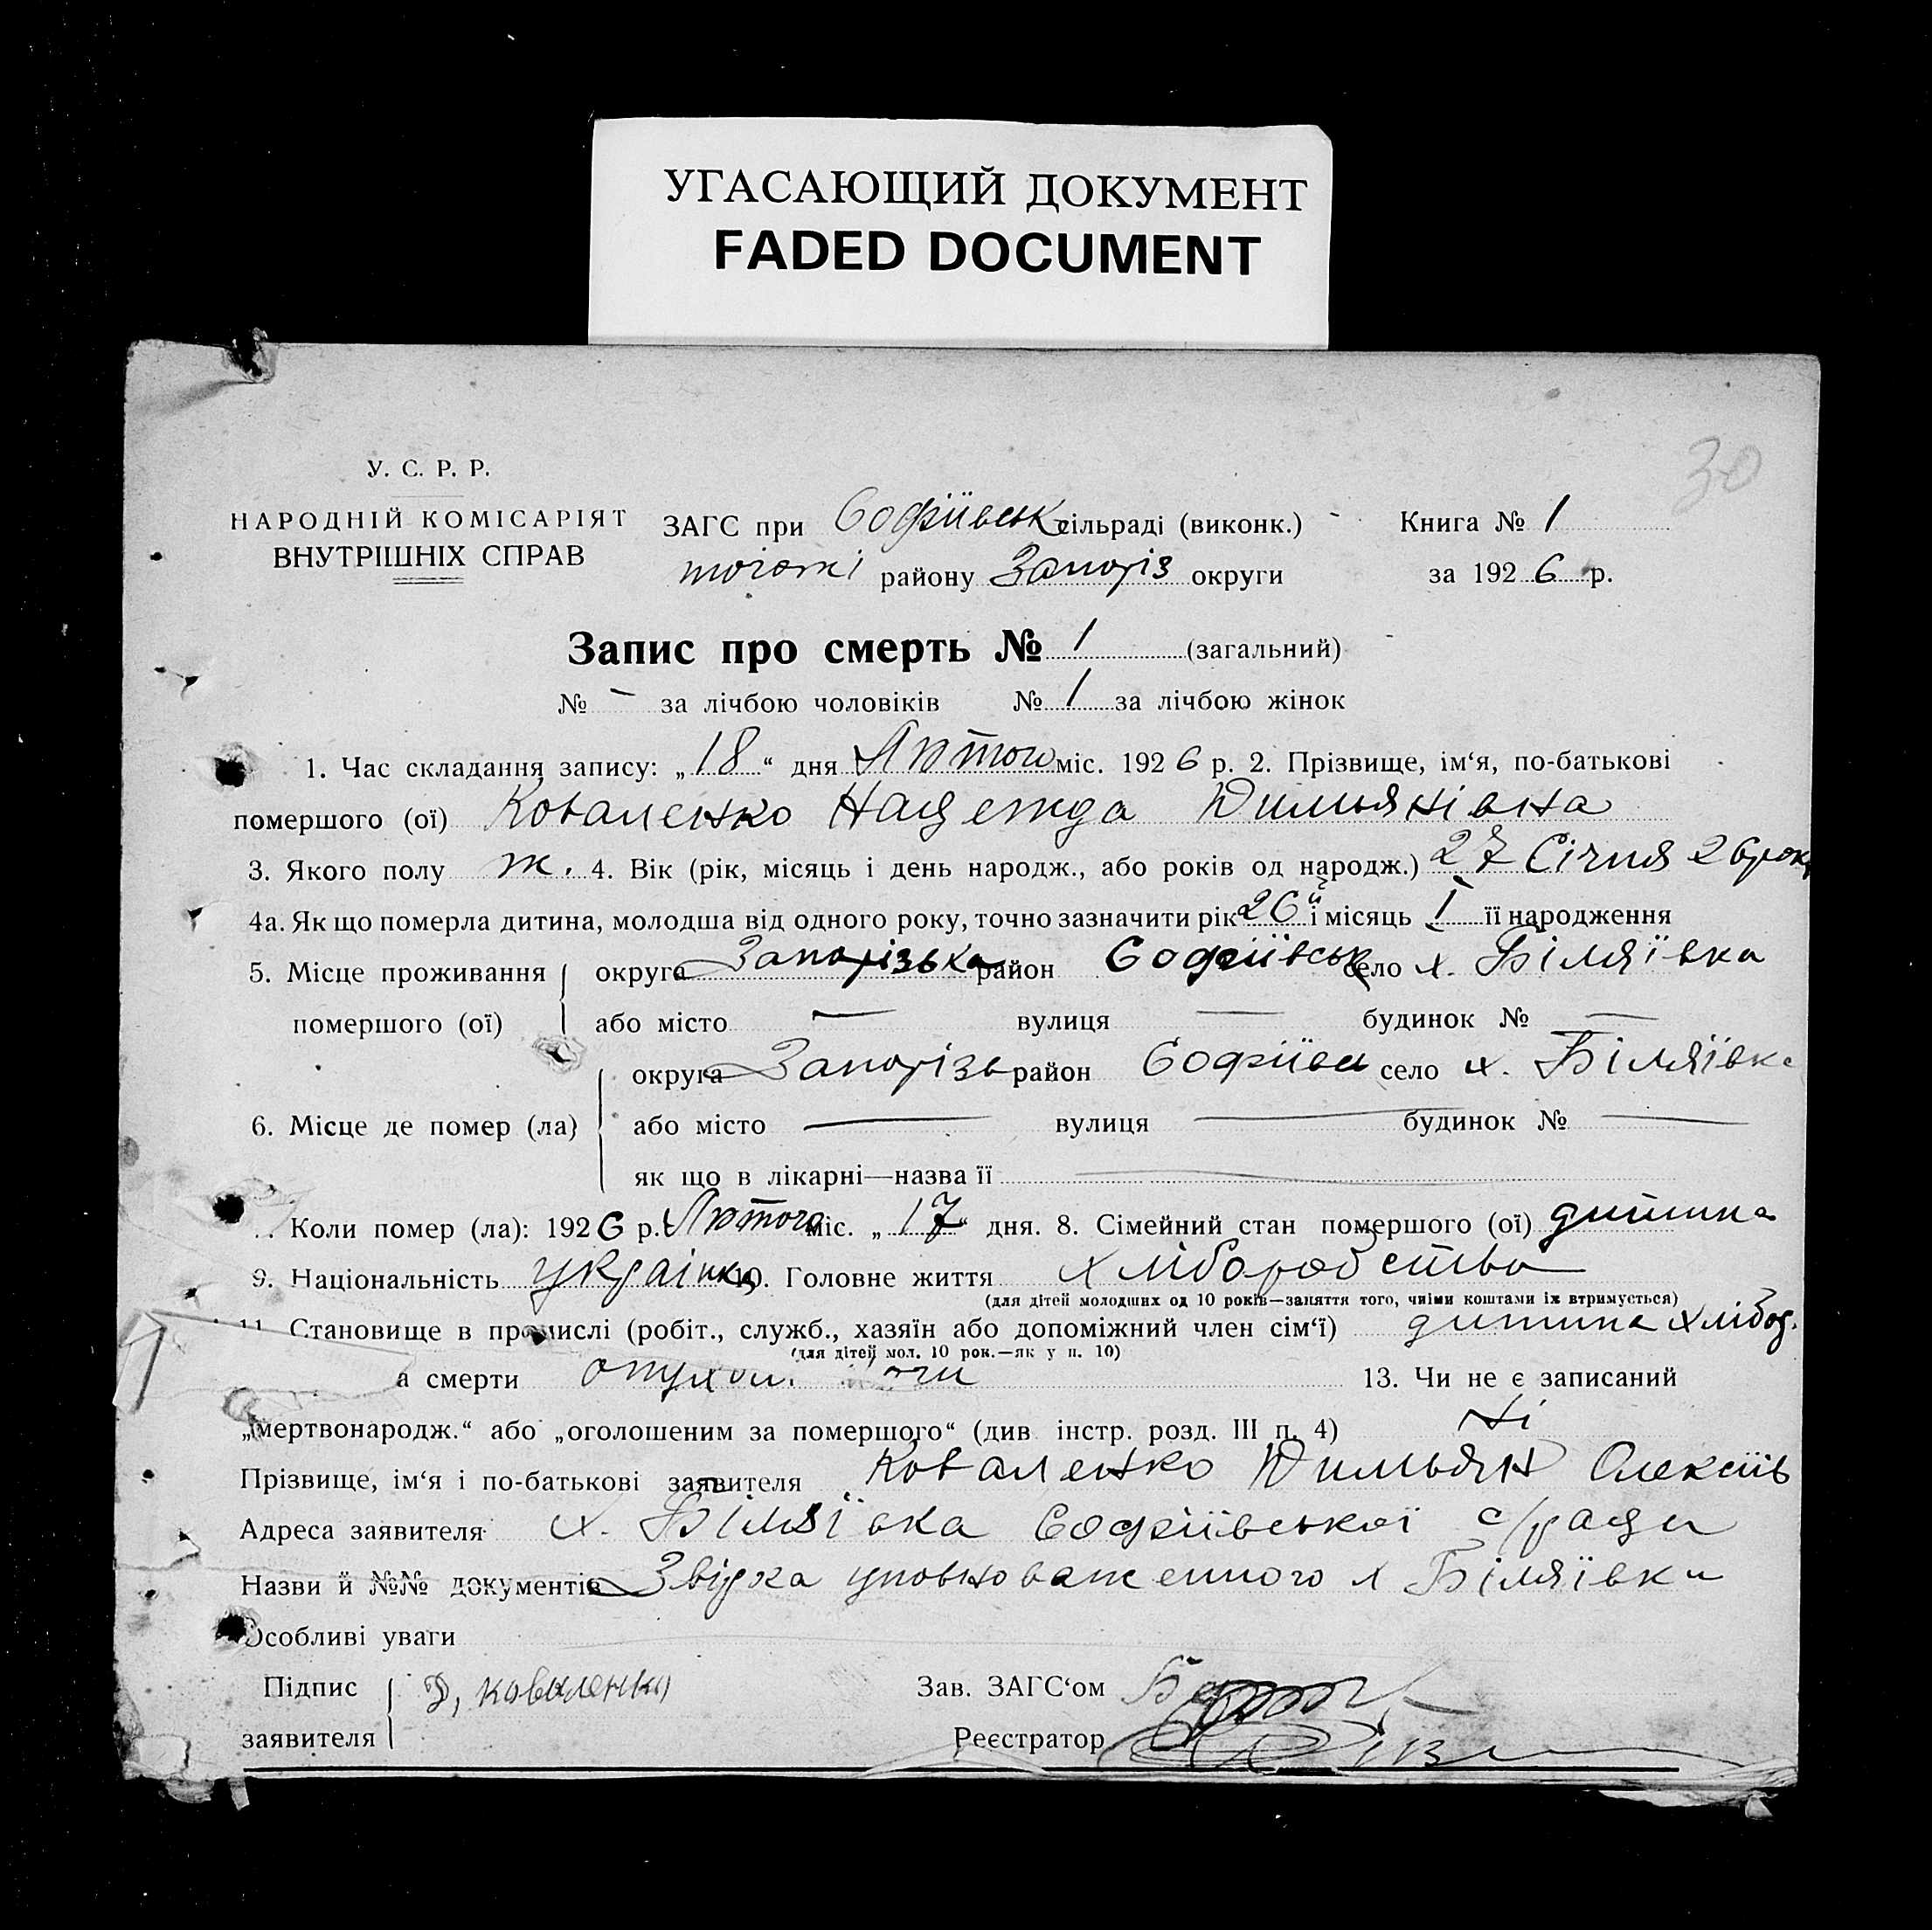 УГАСАЮЩИЙ ДОКУМЕНТ
FADED DOCUMENT
30
У. С. Р. Р.
НАРОДНІЙ КОМІСАРІЯТ
ВНУТРІШНІХ СПРАВ
ЗАГС при Софіївськ сільраді (виконк.)
тогожі району Запоріз округи
Книга № 1
за 1926 р.
Запис про смерть № 1 (загальний)
№ – за лічбою чоловіків № 1 за лічбою жінок
1. Час складання запису: „18“ дня Лютого міс. 1926 р. 2. Прізвище, ім‘я, по-батькові
помершого (ої) Коваленко Надежда Димьянівна
3. Якого полу ж. 4. Вік (рік, місяць і день народж., або років од народж.) 27 Січня 26 рок
4а. Як що померла дитина, молодша від одного року, точно зазначити рік 26 і місяць I її народження
5. Місце проживання округа Запорізька район Софіївськ село х. Біляївка
помершого (ої) або місто — вулиця — будинок № —
округа Запорізь район Софіївсь село х. Біляївка
6. Місце де помер (ла) або місто — вулиця — будинок № —
як що в лікарні—назва її —
Коли помер (ла): 1926 р. Лютого міс. „17“ дня. 8. Сімейний стан помершого (ої) дитина
9. Національність українка 10. Головне життя хліборобство
(для дітей молодших од 10 років—заняття того, чиїми коштами їх втримується)
11. Становище в промислі (робіт., служб., хазяїн або допоміжний член сім‘ї) дитина хлібор.
(для дітей мол. 10 рок.—як у п. 10)
а смерти опухол. 13. Чи не є записаний
„мертвонародж.“ або „оголошеним за помершого“ (див інстр. розд. III п. 4) Ні
Прізвище, ім‘я і по-батькові заявителя Коваленко Димьян Олексіїв
Адреса заявителя х. Біляївка Софіївської с/ради
Назви й №№ документів Звідка уповноваженного х Біляївки
Особливі уваги
Підпис заявителя Д, коваленко
Зав. ЗАГС‘ом
Реєстратор